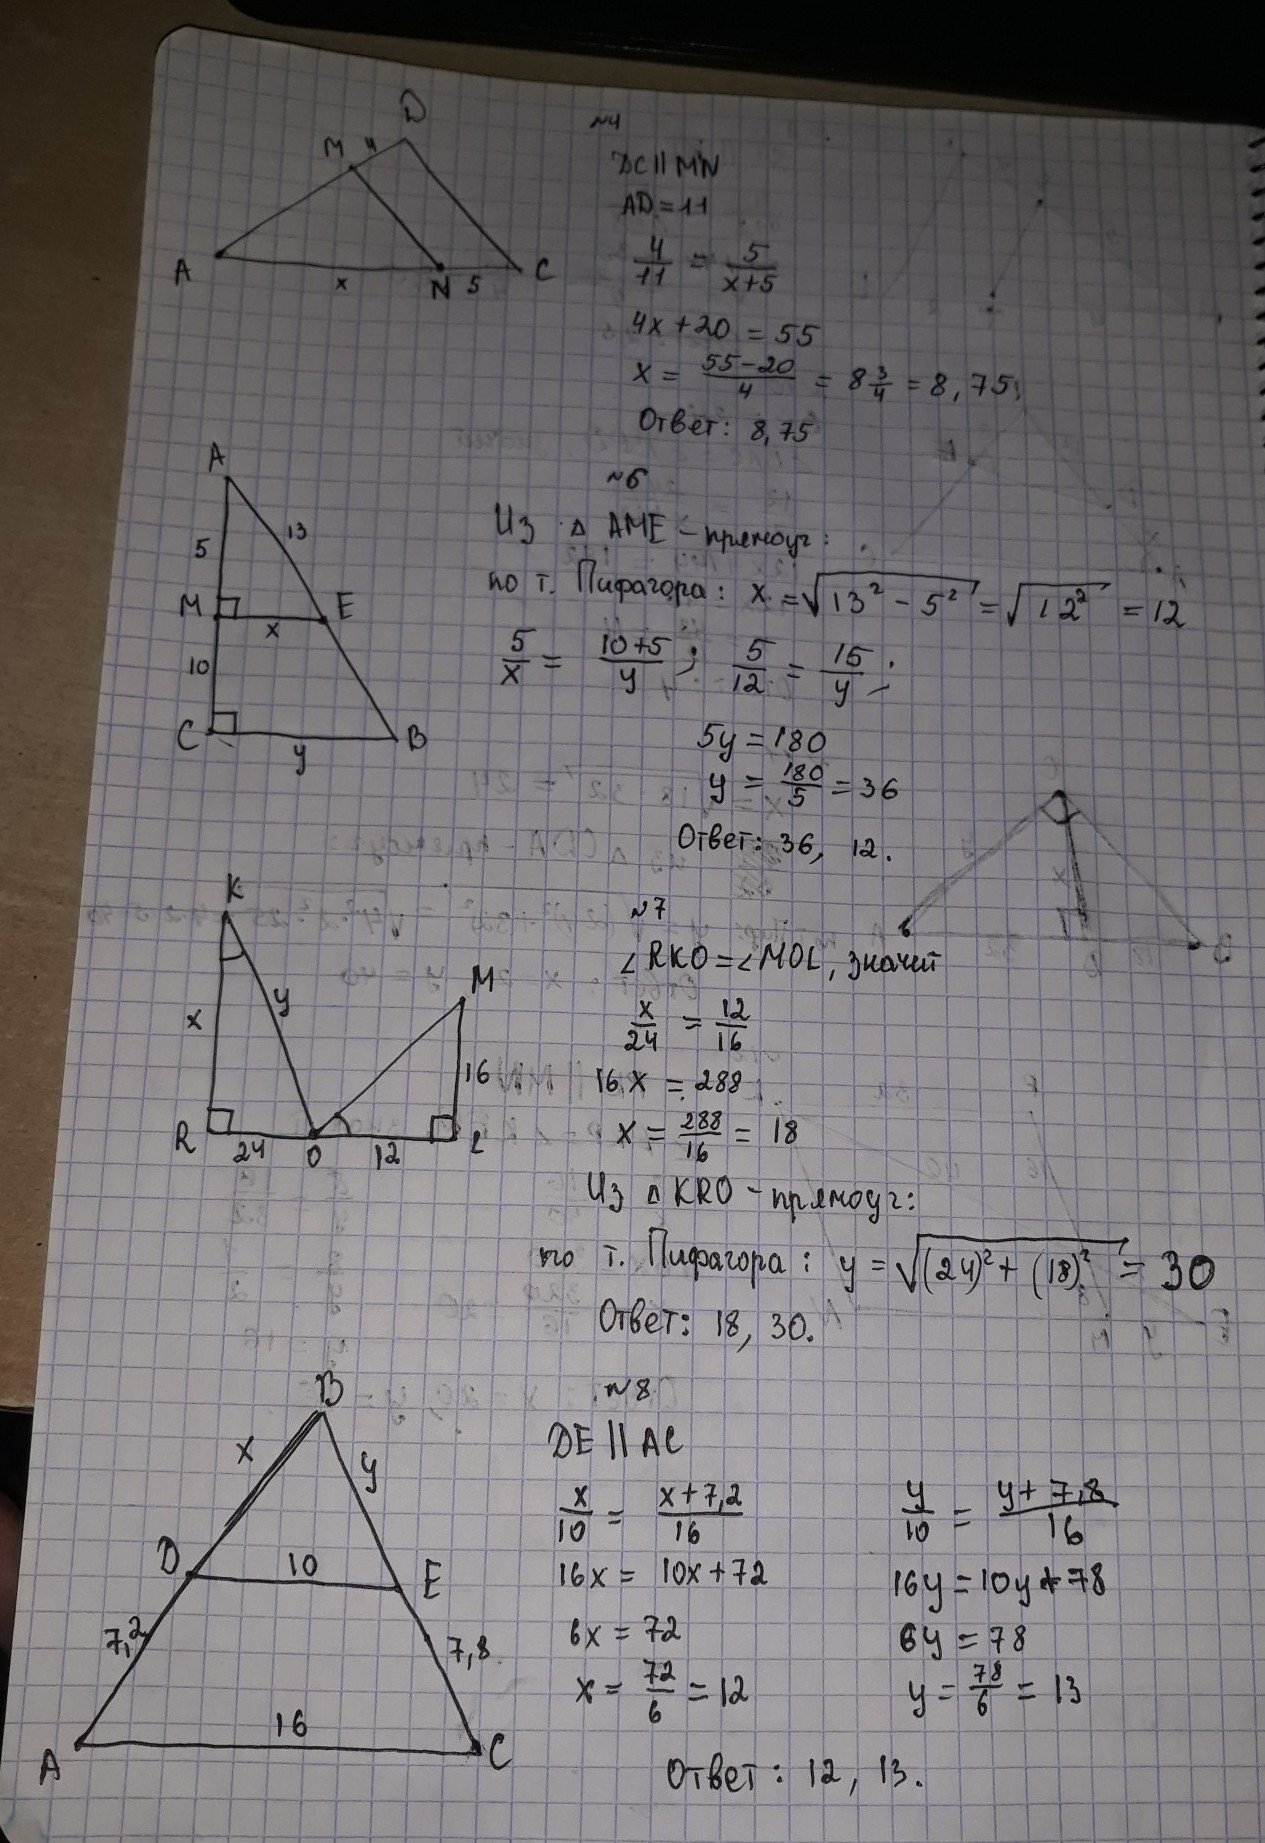 №4
D
M 4
A x N 5 C
DC || MN
AD = 11
4/11 = 5/(x+5)
4x + 20 = 55
x = (55-20)/4 = 8 3/4 = 8,75;
Ответ: 8,75
№6
A
5 13
M x E
10
C y B
Из △ AME - прямоуг:
по т. Пифагора: x = √(13² - 5²) = √(12²) = 12
5/x = (10+5)/y ; 5/12 = 15/y ;
5y = 180
y = 180/5 = 36
Ответ: 36, 12.
№7
K
x y M
16
R 24 O 12 L
∠RKO = ∠MOL, значит
x/24 = 12/16
16x = 288
x = 288/16 = 18
Из △ KRO - прямоуг:
по т. Пифагора: y = √((24)² + (18)²) = 30
Ответ: 18, 30.
№8
B
x y
D 10 E
7,2 7,8
A 16 C
DE || AC
x/10 = (x+7,2)/16
16x = 10x + 72
6x = 72
x = 72/6 = 12
y/10 = (y+7,8)/16
16y = 10y + 78
6y = 78
y = 78/6 = 13
Ответ: 12, 13.